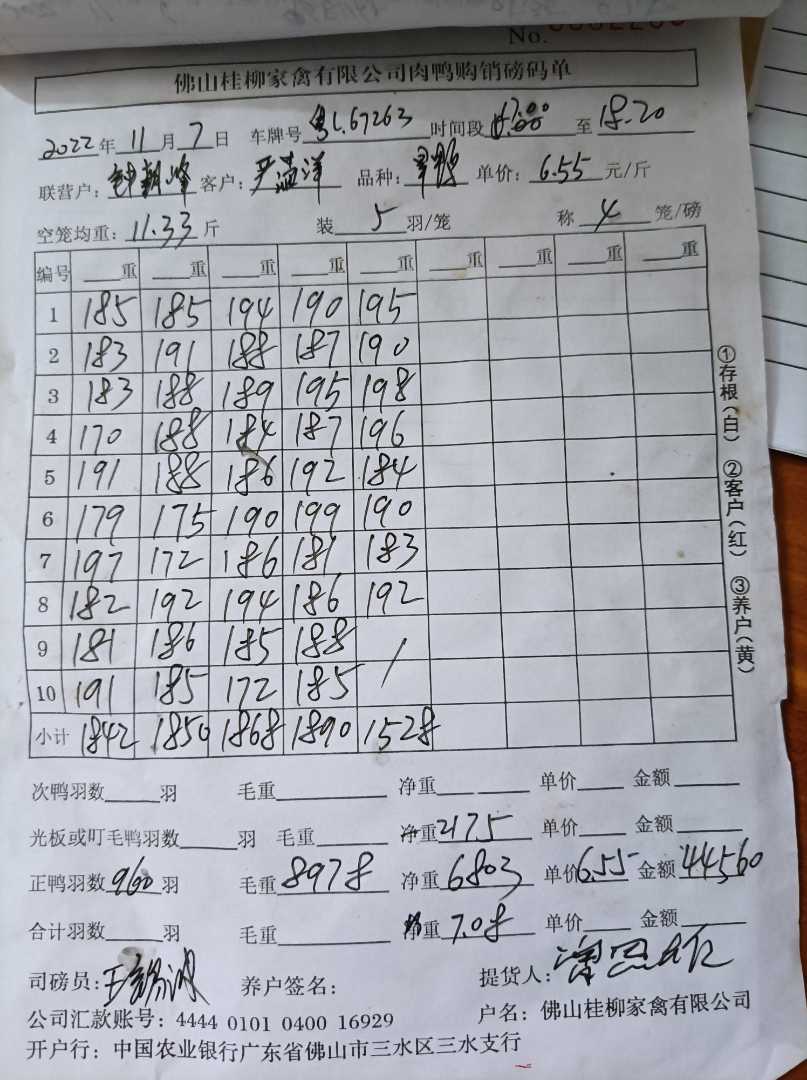 No.
佛山桂柳家禽有限公司肉鸭购销磅码单
2022年 11月 7日 车牌号 粤L.67263 时间段 至 18.20
联营户: 钟朝峰 客户: 品种: 单价: 6.55 元/斤
空笼均重: 11.33斤 装 5 羽/笼 称 4 笼/磅
编号 重 重 重 重 重 重 重 重 重
1 185 185 194 190 195
2 183 191 188 187 190
3 183 188 189 195 198
4 170 188 184 187 196
5 191 188 186 192 184
6 179 175 190 199 190
7 197 172 186 181 183
8 182 192 194 186 192
9 181 186 185 188 /
10 191 185 172 185
小计 1842 1850 1868 1890 1528
次鸭羽数 羽 毛重 净重 单价 金额
光板或叮毛鸭羽数 羽 毛重 净重 2175 单价 金额
正鸭羽数 960 羽 毛重 8978 净重 6803 单价 6.55 金额 44560
合计羽数 羽 毛重 重 7.08 单价 金额
司磅员: 养户签名: 提货人:
公司汇款账号: 4444 0101 0400 16929 户名: 佛山桂柳家禽有限公司
开户行: 中国农业银行广东省佛山市三水区三水支行
①存根(白) ②客户(红) ③养户(黄)